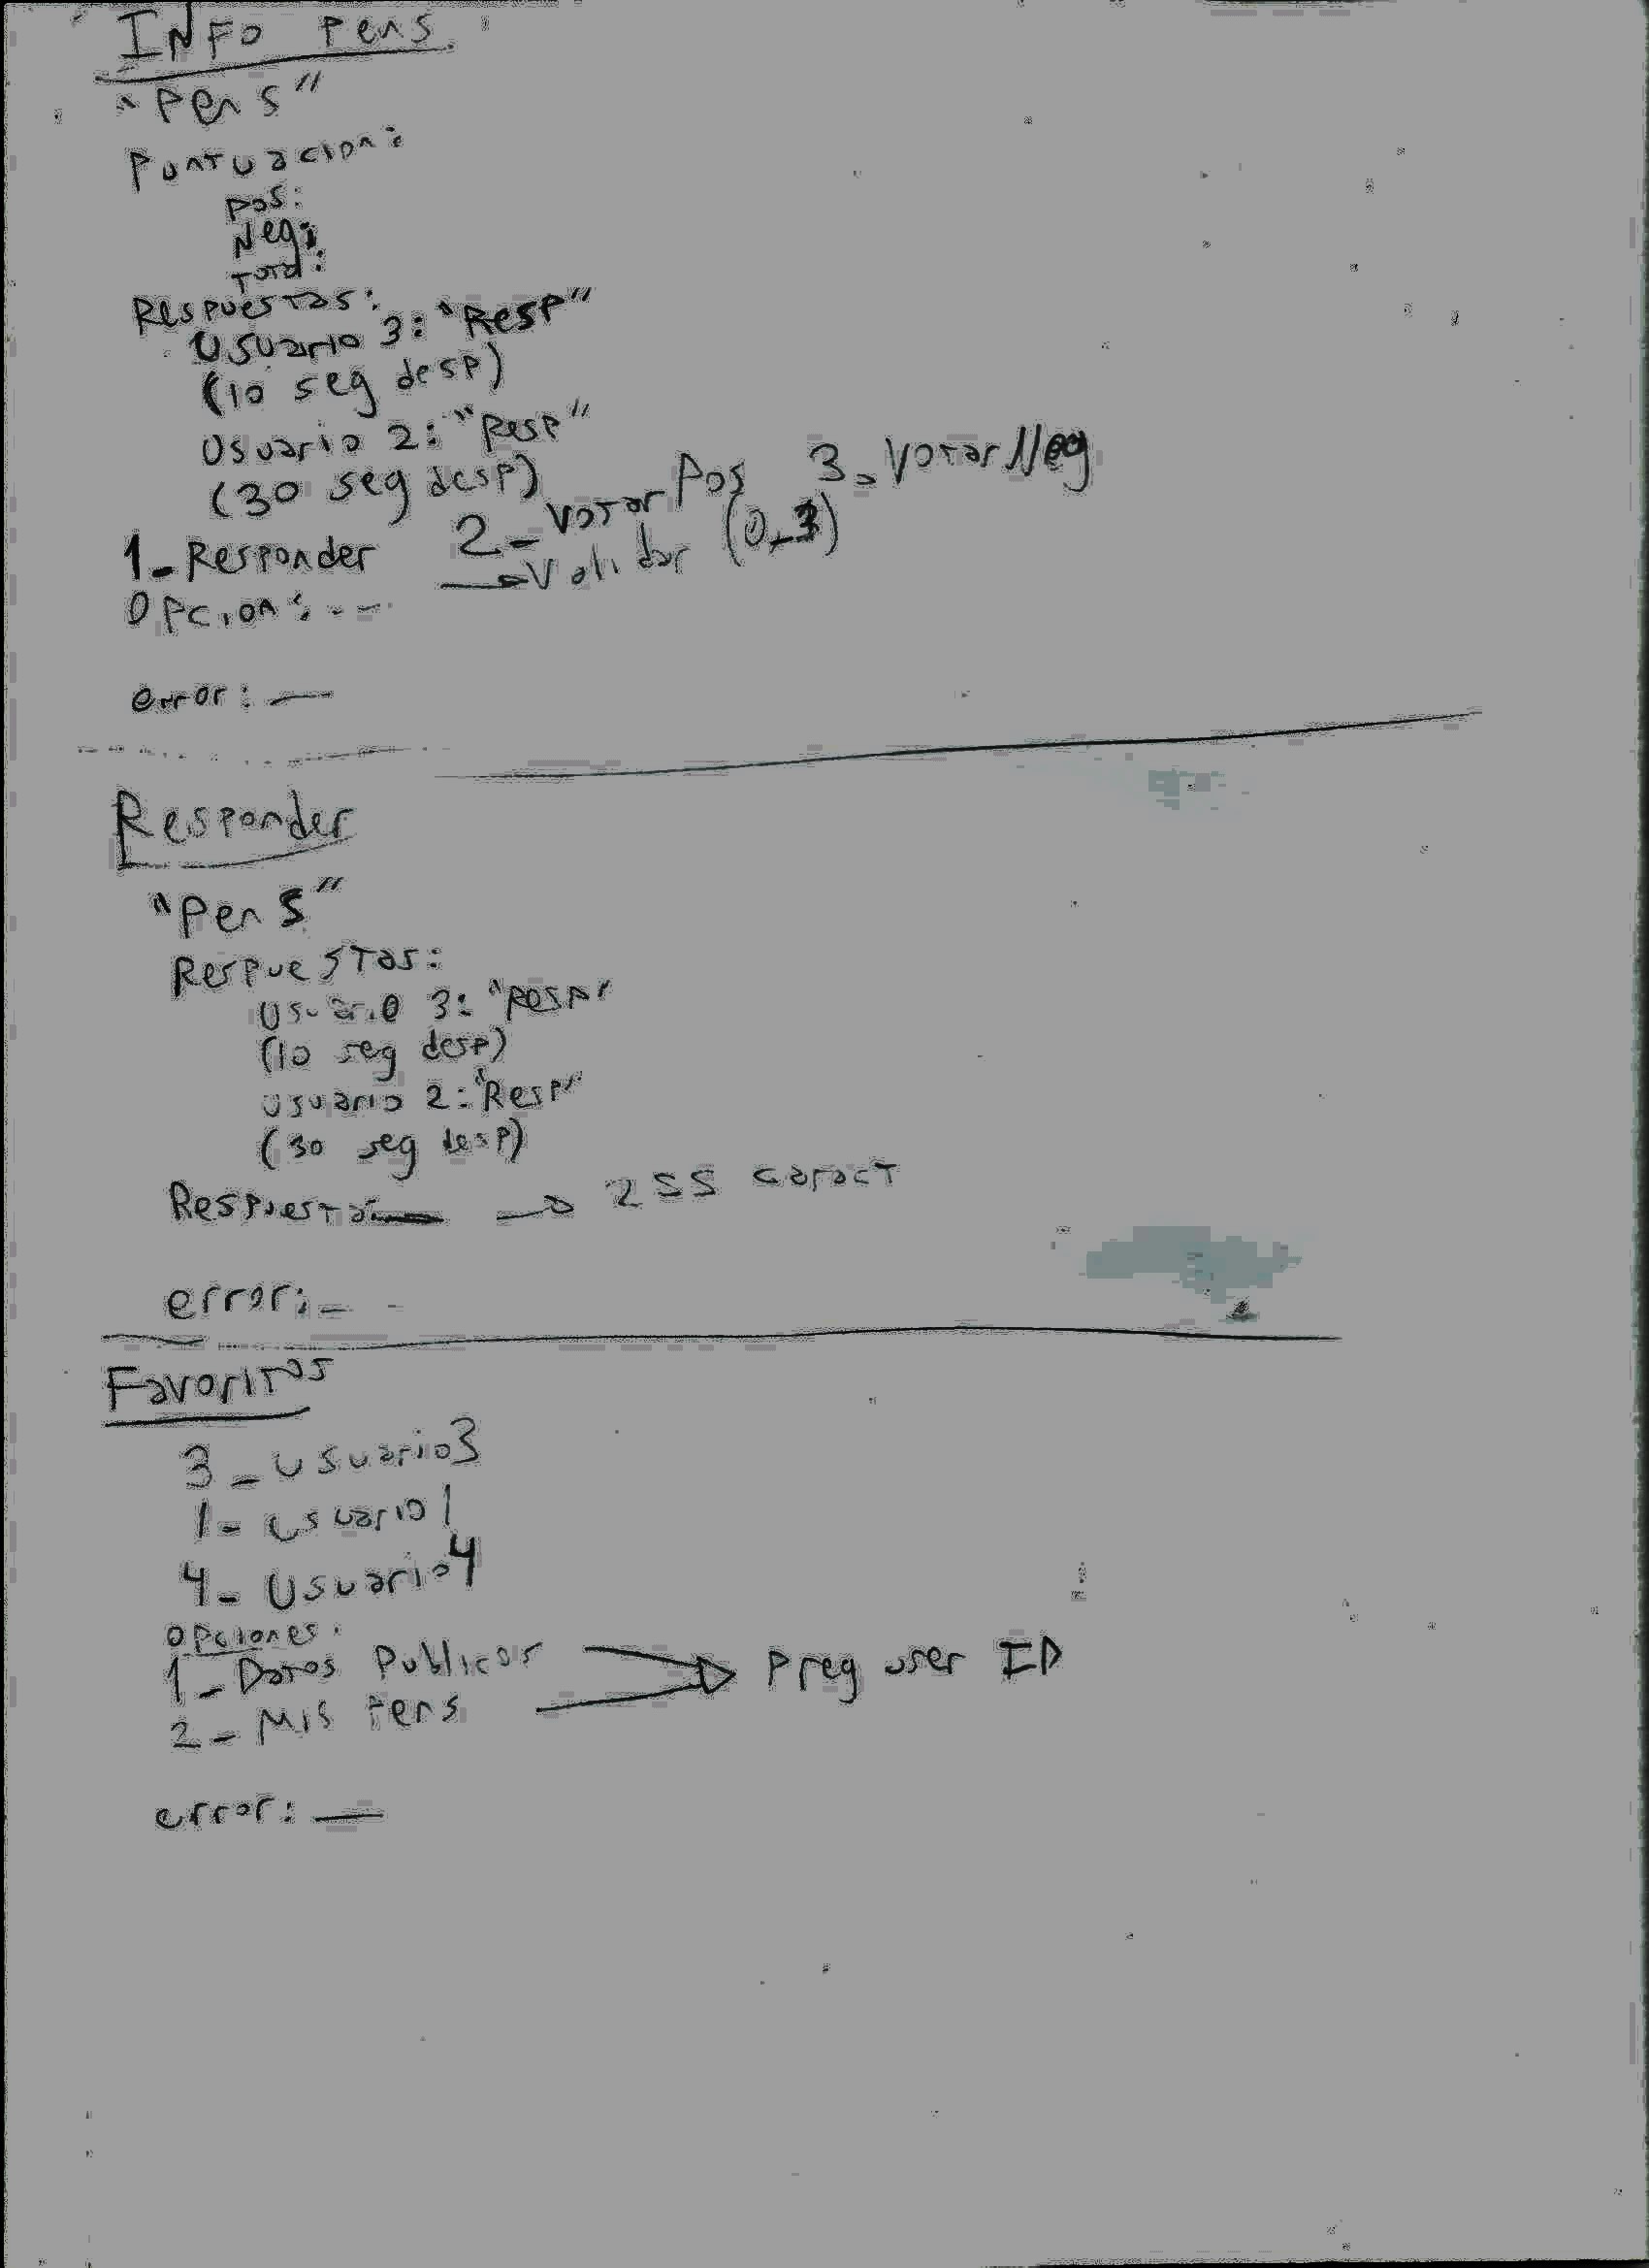 INFO Pens.
"Pens"
Puntuacion:
Pos:
Neg:
Total:
Respuestas:
Usuario 3: "Resp"
(10 seg desp)
Usuario 2: "Resp"
(30 seg desp)
1_Responder 2_Votar Pos 3_Votar Neg
Opcion: -- →Validar (0_3)
error: —
Responder
"Pens"
Respuestas:
Usuario 3: "Resp"
(10 seg desp)
Usuario 2: "Resp"
(30 seg desp)
Respuesta: — → 255 caract
error: _
Favoritos
3_Usuario3
1_Usuario1
4_Usuario4
Opciones:
1_Datos Publicos → Preg user ID
2_Mis Pens
error: —